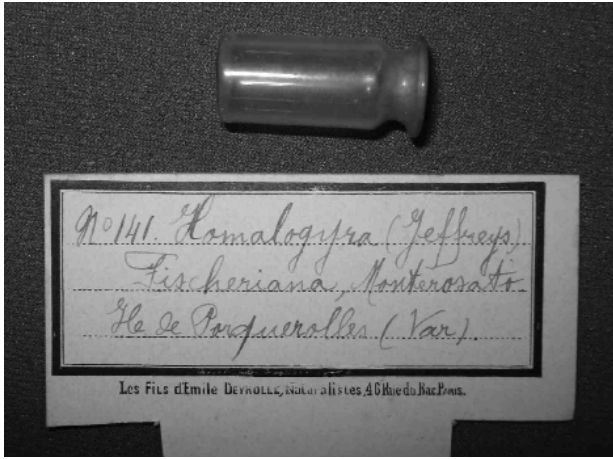 No 141. Homalogyra (Jeffreys)
Fischeriana, Monterosato.
Ile de Porquerolles (Var).
Les Fils d'Emile DEYROLLE, Naturalistes, 46 Rue du Bac, Paris.